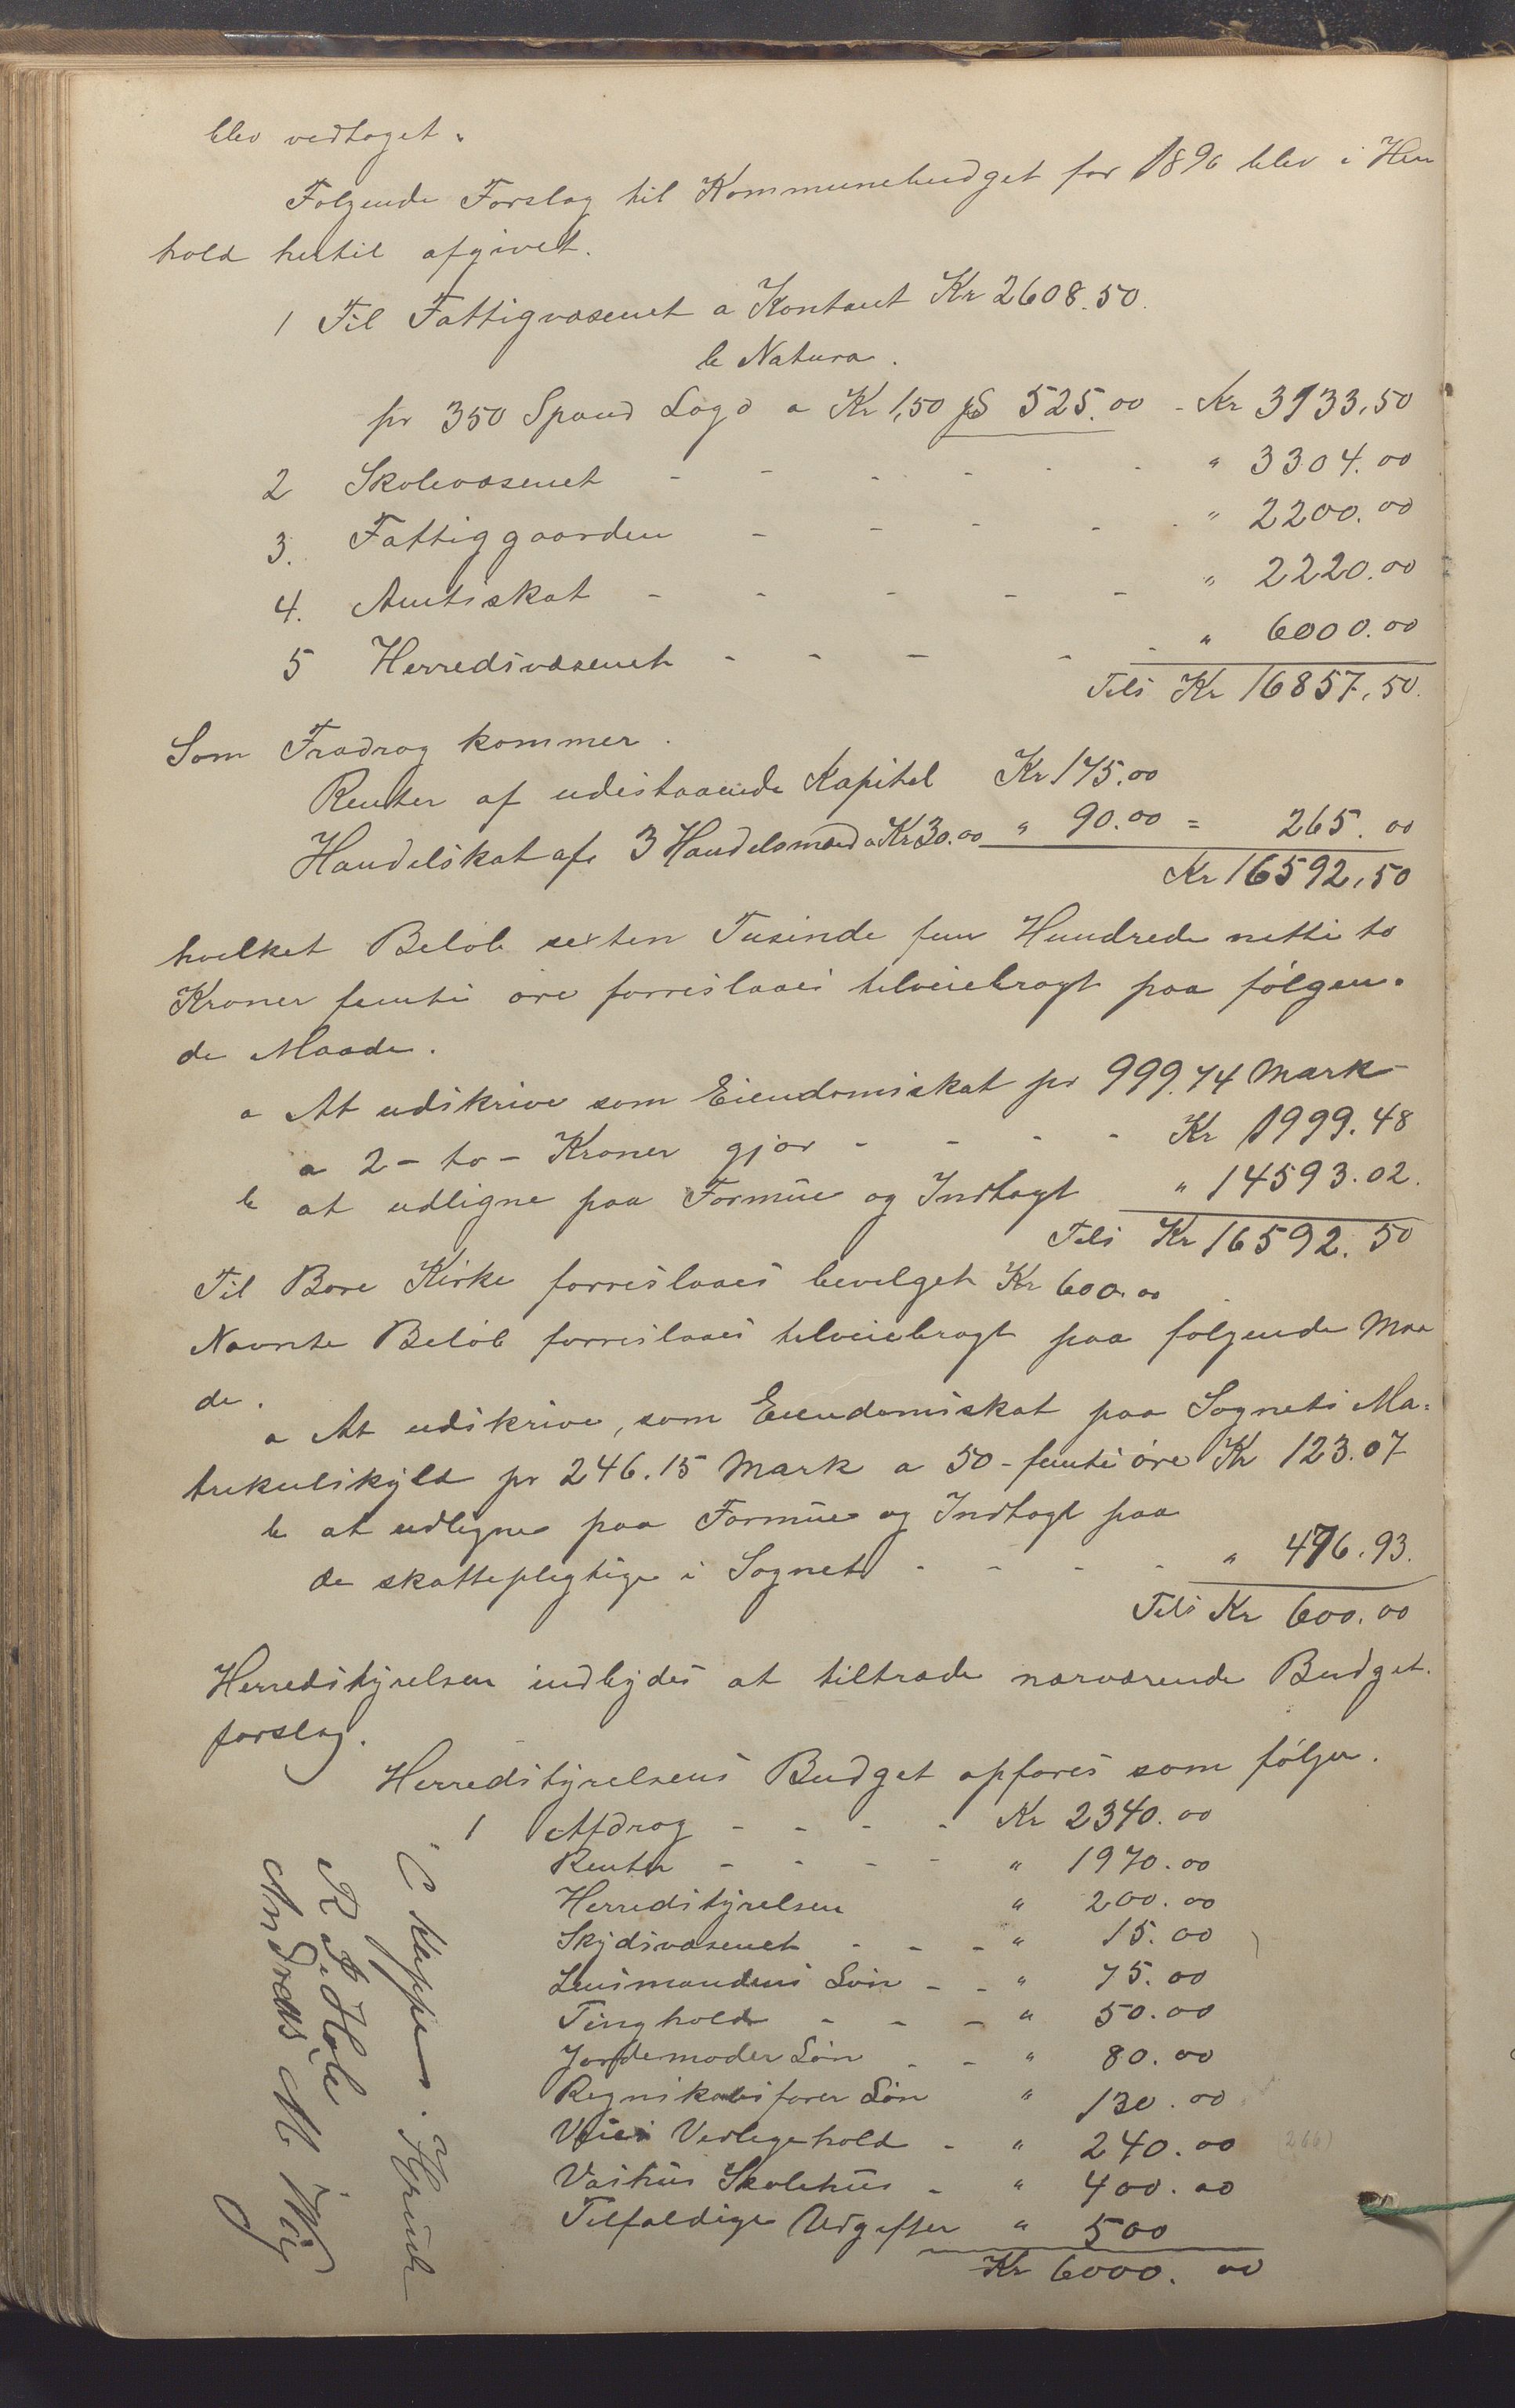 blev vedtaget.
Følgende Forslag til Kommunebudget for 1896 blev i Hen
hold hertil afgivet.
1 Til Fattigvæsenet a Kontant Kr 2608.50.
b Natura.
pr 350 Spand Lagd a Kr 1,50 525.00 - Kr 3133,50
2 Skolevæsenet - - - - - - " 3304.00
3. Fattiggaarden - - - - - " 2200.00
4. Amtsskat - - - - - " 2220.00
5 Herredsvæsenet - - - - - " 6000.00
Tils Kr 16857,50.
Som Fradrag kommer.
Renter af udestaaende Kapital Kr 175.00
Handelskat af 3 Handelsmænd a Kr 30.00 " 90.00 = 265.00
Kr 16592,50
hvilket Beløb sexten Tusinde fem Hundrede nitti to
Kroner femti øre forreslaaes tilveiebragt paa følgen-
de Maade.
a At udskrive som Eiendomsskat pr 999.74 Mark
a 2 - to - Kroner gjør - - - - Kr 1999.48
b at udligne paa Formue og Indtægt " 14593.02.
Tils Kr 16592.50
Til Bore Kirke forreslaaes bevilget Kr 600.00
Nævnte Beløb forreslaaes tilveiebragt paa følgende Maa
de.
a At udskrive, som Eiendomsskat paa Sognets Ma-
trikulskyld pr 246.15 Mark a 50 - femti øre Kr 123.07
b at udligne paa Formue og Indtægt paa
de skattepligtige i Sognet - - - - " 476.93.
Tils Kr 600.00
Herredstyrelsen indbydes at tiltræde nærværende Budget-
forslag.
Herredstyrelsens Budget opføres som følger.
1 Afdrag - - - - Kr 2340.00
Renter - - - - " 1970.00
Herredstyrelsen " 200.00
Skydsvæsenet - - - " 15.00
Lensmandens Løn - - " 75.00
Tinghold - - - " 50.00
Jordemoder Løn - - " 80.00
Regnskabsfører Løn " 130.00
Veies Vedligehold - " 240.00
Vashus Skolehus - " 400.00
Tilfældige Udgifter " 500
Kr 6000.00
Andreas M